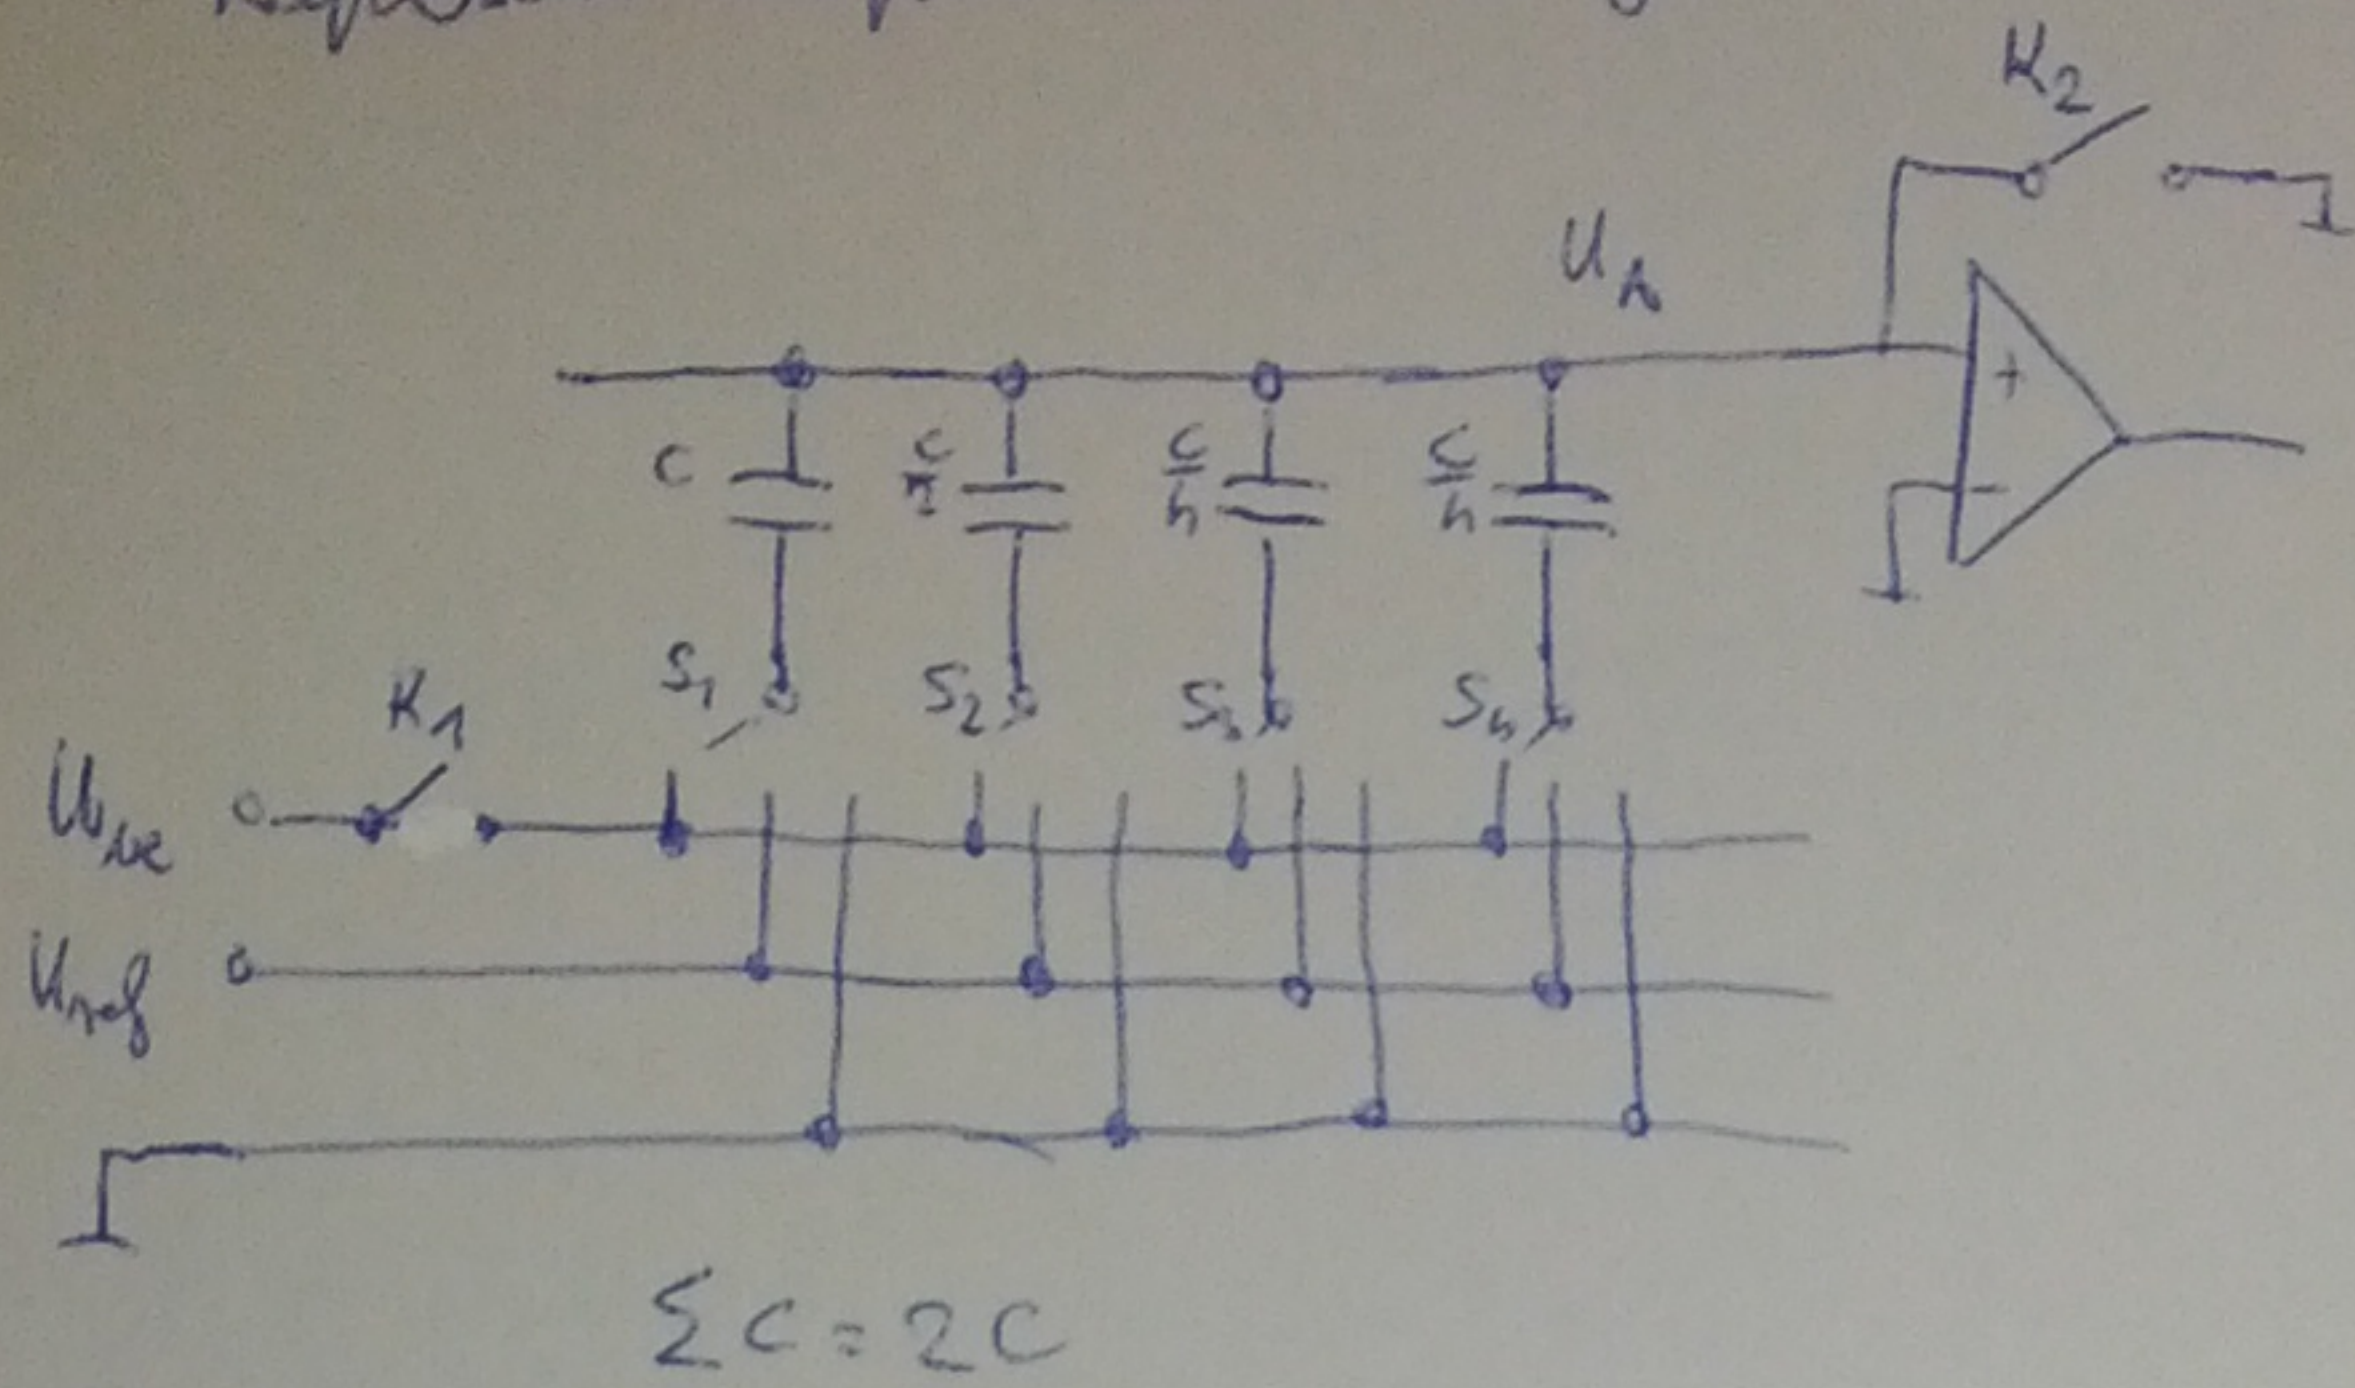 K₂
U_A
+
C C/2 C/4 C/4
−
S₁ S₂ S₃ S₄
K₁
U
Uref
ΣC = 2C